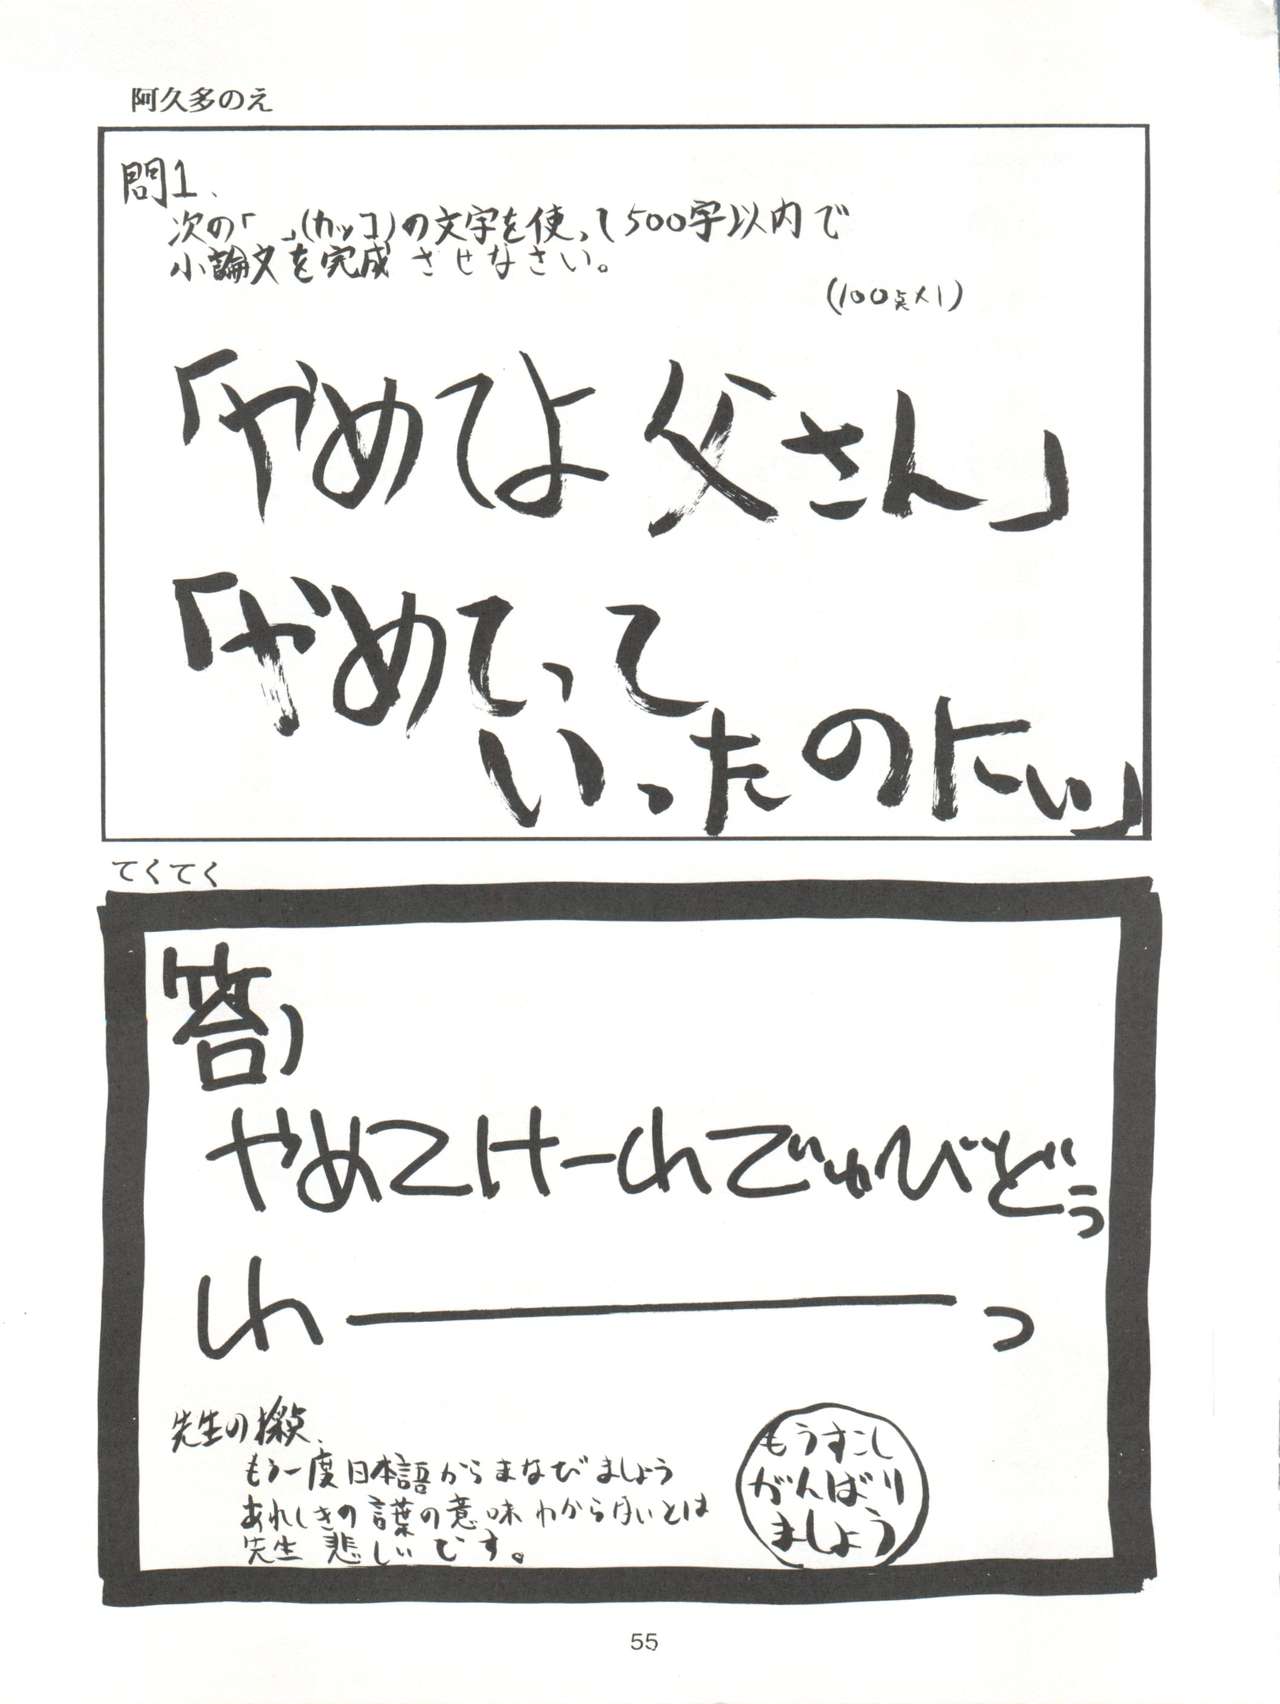 阿久多のえ
問1、
次の「　」(カッコ)の文字を使って500字以内で
小論文を完成させなさい。
(100点×1)
「やめてよ 父さん」
「やめてって
いったのにぃ」
てくてく
答)
やめてけーれでぃゅびどぅ
わーーーっ
先生の採点、
もう一度日本語からまなびましょう
あれしきの言葉の意味わからないとは
先生 悲しいです。
もうすこし
がんばり
ましょう
55